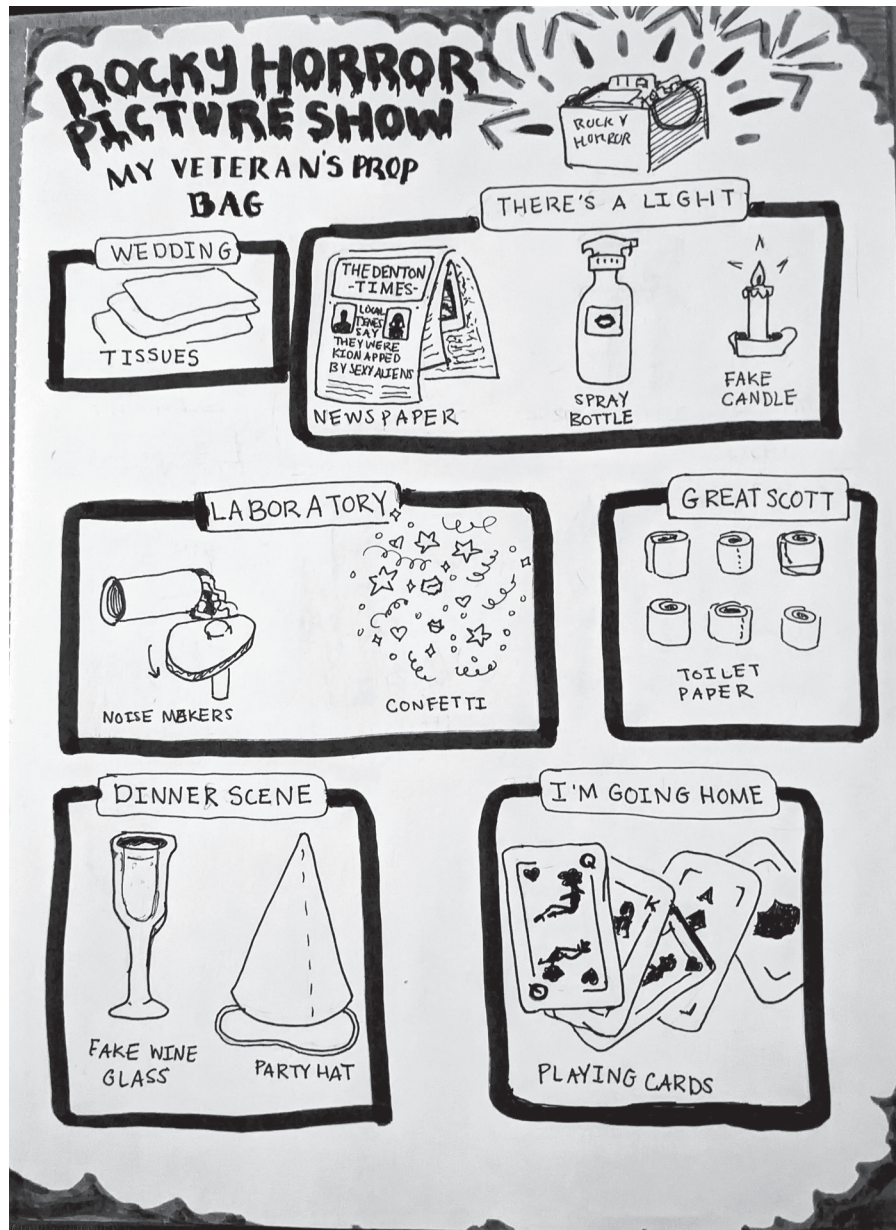 ROCKY HORROR
PICTURE SHOW
MY VETERAN'S PROP
BAG
ROCKY
HORROR
THERE'S A LIGHT
WEDDING
TISSUES
THE DENTON
-TIMES-
LOCAL
SAY
THEY WERE
KIDNAPPED
BY SEXY ALIENS
NEWSPAPER
SPRAY
BOTTLE
FAKE
CANDLE
LABORATORY
NOISE MAKERS
CONFETTI
GREAT SCOTT
TOILET
PAPER
DINNER SCENE
FAKE WINE
GLASS
PARTY HAT
I'M GOING HOME
Q
K
A
Q
PLAYING CARDS